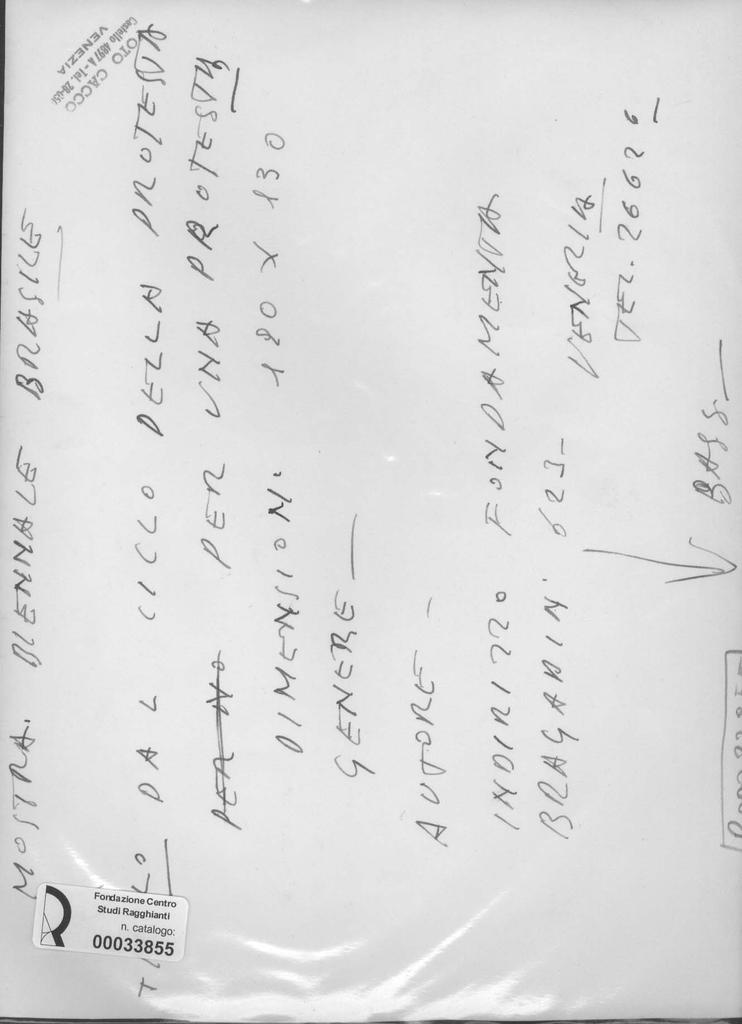 MOSTRA. BIENNALE BRASILE
DAL CICLO DELLA PROTESTA
PER UNA PROTESTA
DIMENSION. 180 X 130
GENERE —
AUTORE -
INDIRIZZO FONDAMENTA
BRAGADIN 623- VENEZIA
TEL. 26626
BASS.
FOTO CACCO
VENEZIA
Fondazione Centro
Studi Ragghianti
n. catalogo:
00033855